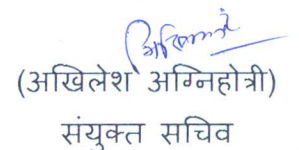 (अखिलेश अग्निहोत्री)
संयुक्त सचिव